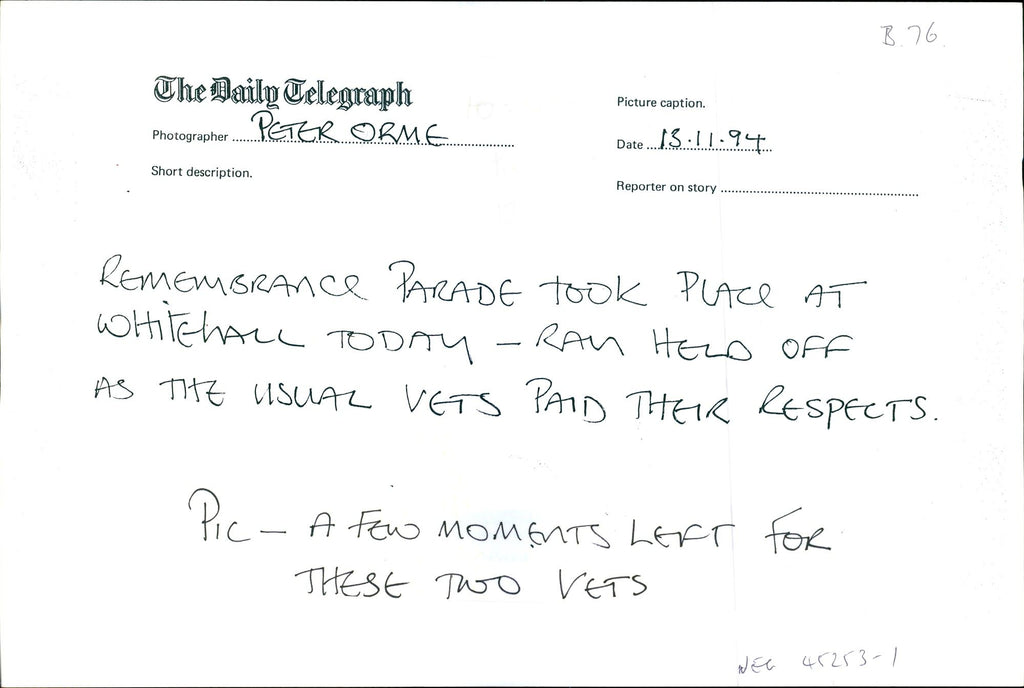 B.76
The Daily Telegraph
Picture caption.
Photographer PETER ORME
Date 13.11.94
Short description.
Reporter on story
REMEMBRANCE PARADE TOOK PLACE AT
WHITEHALL TODAY – RAIN HELD OFF
AS THE USUAL VETS PAID THEIR RESPECTS.
PIC – A FEW MOMENTS LEFT FOR
THESE TWO VETS
NEG 45253-1